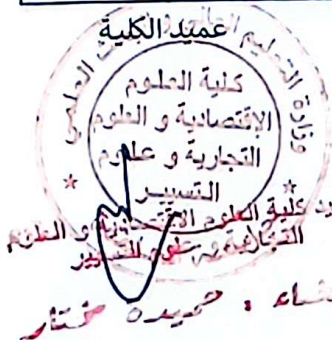 عميد الكلية
وزارة التعليم العلمي
كلية العلوم
الإقتصادية و العلوم
التجارية و علوم
التسيير
كلية العلوم الإقتصادية و العلوم
التجارية و علوم التسيير
حميدة مختار